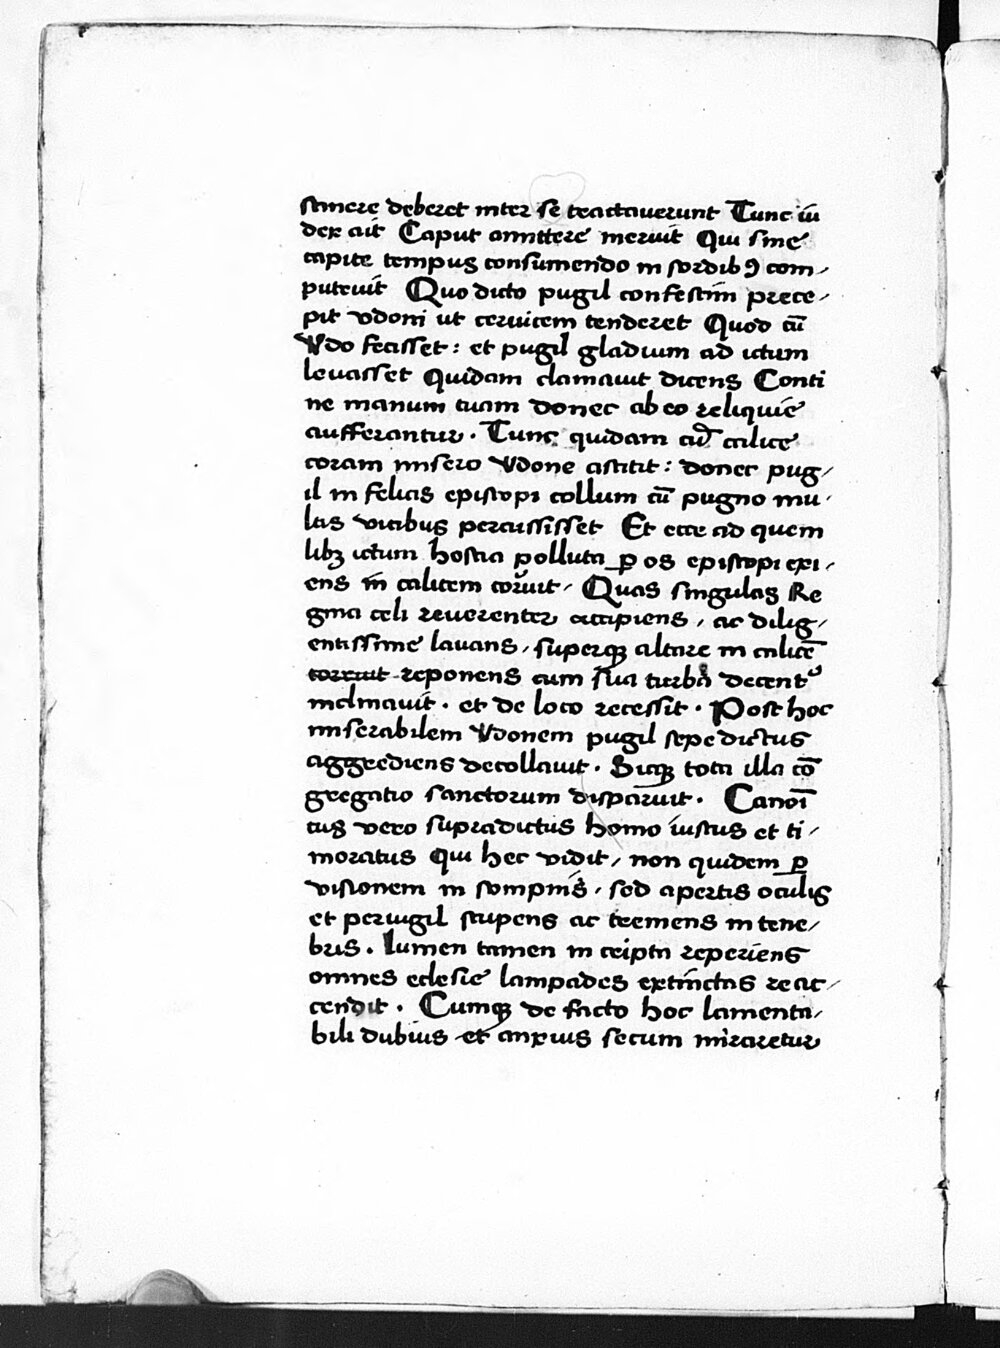 stincre deberet inter se tractauerunt Tunc iu
dex ait Caput amittere meruit Qui sine
capite tempus consumendo in sordibꝰ com-
putruit Quo dicto pugil confestim prece-
pit vdoni ut ceruicem tenderet Quod cū
Vdo fecisset: et pugil gladium ad ictum
leuasset Quidam clamauit dicens Conti
ne manum tuam donec ab eo reliquie
aufferantur. Tunc quidam cū calice
coram misero Vdone astitit: donec pug-
il in felicis episcopi collum cū pugno mu-
ltis vicibus percussisset Et ecce ad quem
libꝫ ictum hostia polluta ꝑ os episcopi exi-
ens in calicem coruit. Quas singulas Re
gina celi reuerenter accipiens, ac dilig-
entissime lauans, superqꝫ altare in calicē
torruit reponens cum sua turba decentᵘ
inclinauit. et de loco recessit. Post hoc
miserabilem Vdonem pugil sepe dictus
aggrediens decollauit. Sicqꝫ tota illa cō
gregatio sanctorum disparuit. Canoni
cus vero supradictus homo iustus et ti-
moratus Qui hec vidit, non quidem ꝑ
visionem in sompnis, sed apertis oculis
et peruigil stupens ac tremens in tene-
bris. lumen tamen in cripta reperiens
omnes eclesie lampades extinctas reac-
cendit. Cumqꝫ de facto hoc lamenta-
bili dubius et anxius secum miraretur